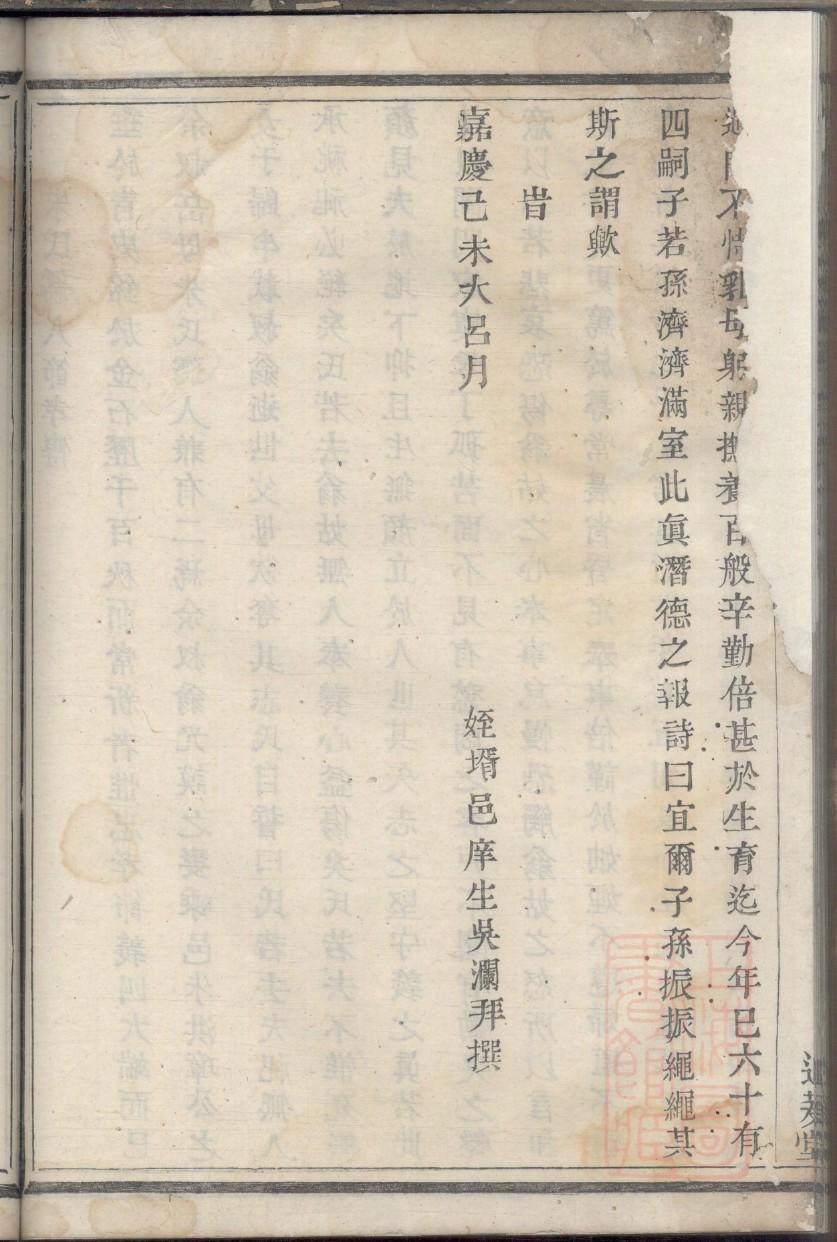 不情乳母躬親撫養百般辛勤倍甚於生育迄今年已六十有
四嗣子若孫濟濟滿室此眞潛德之報詩曰宜爾子孫振振繩繩其
斯之謂歟
旹
嘉慶己未大呂月
姪壻邑庠生吳瀾拜撰